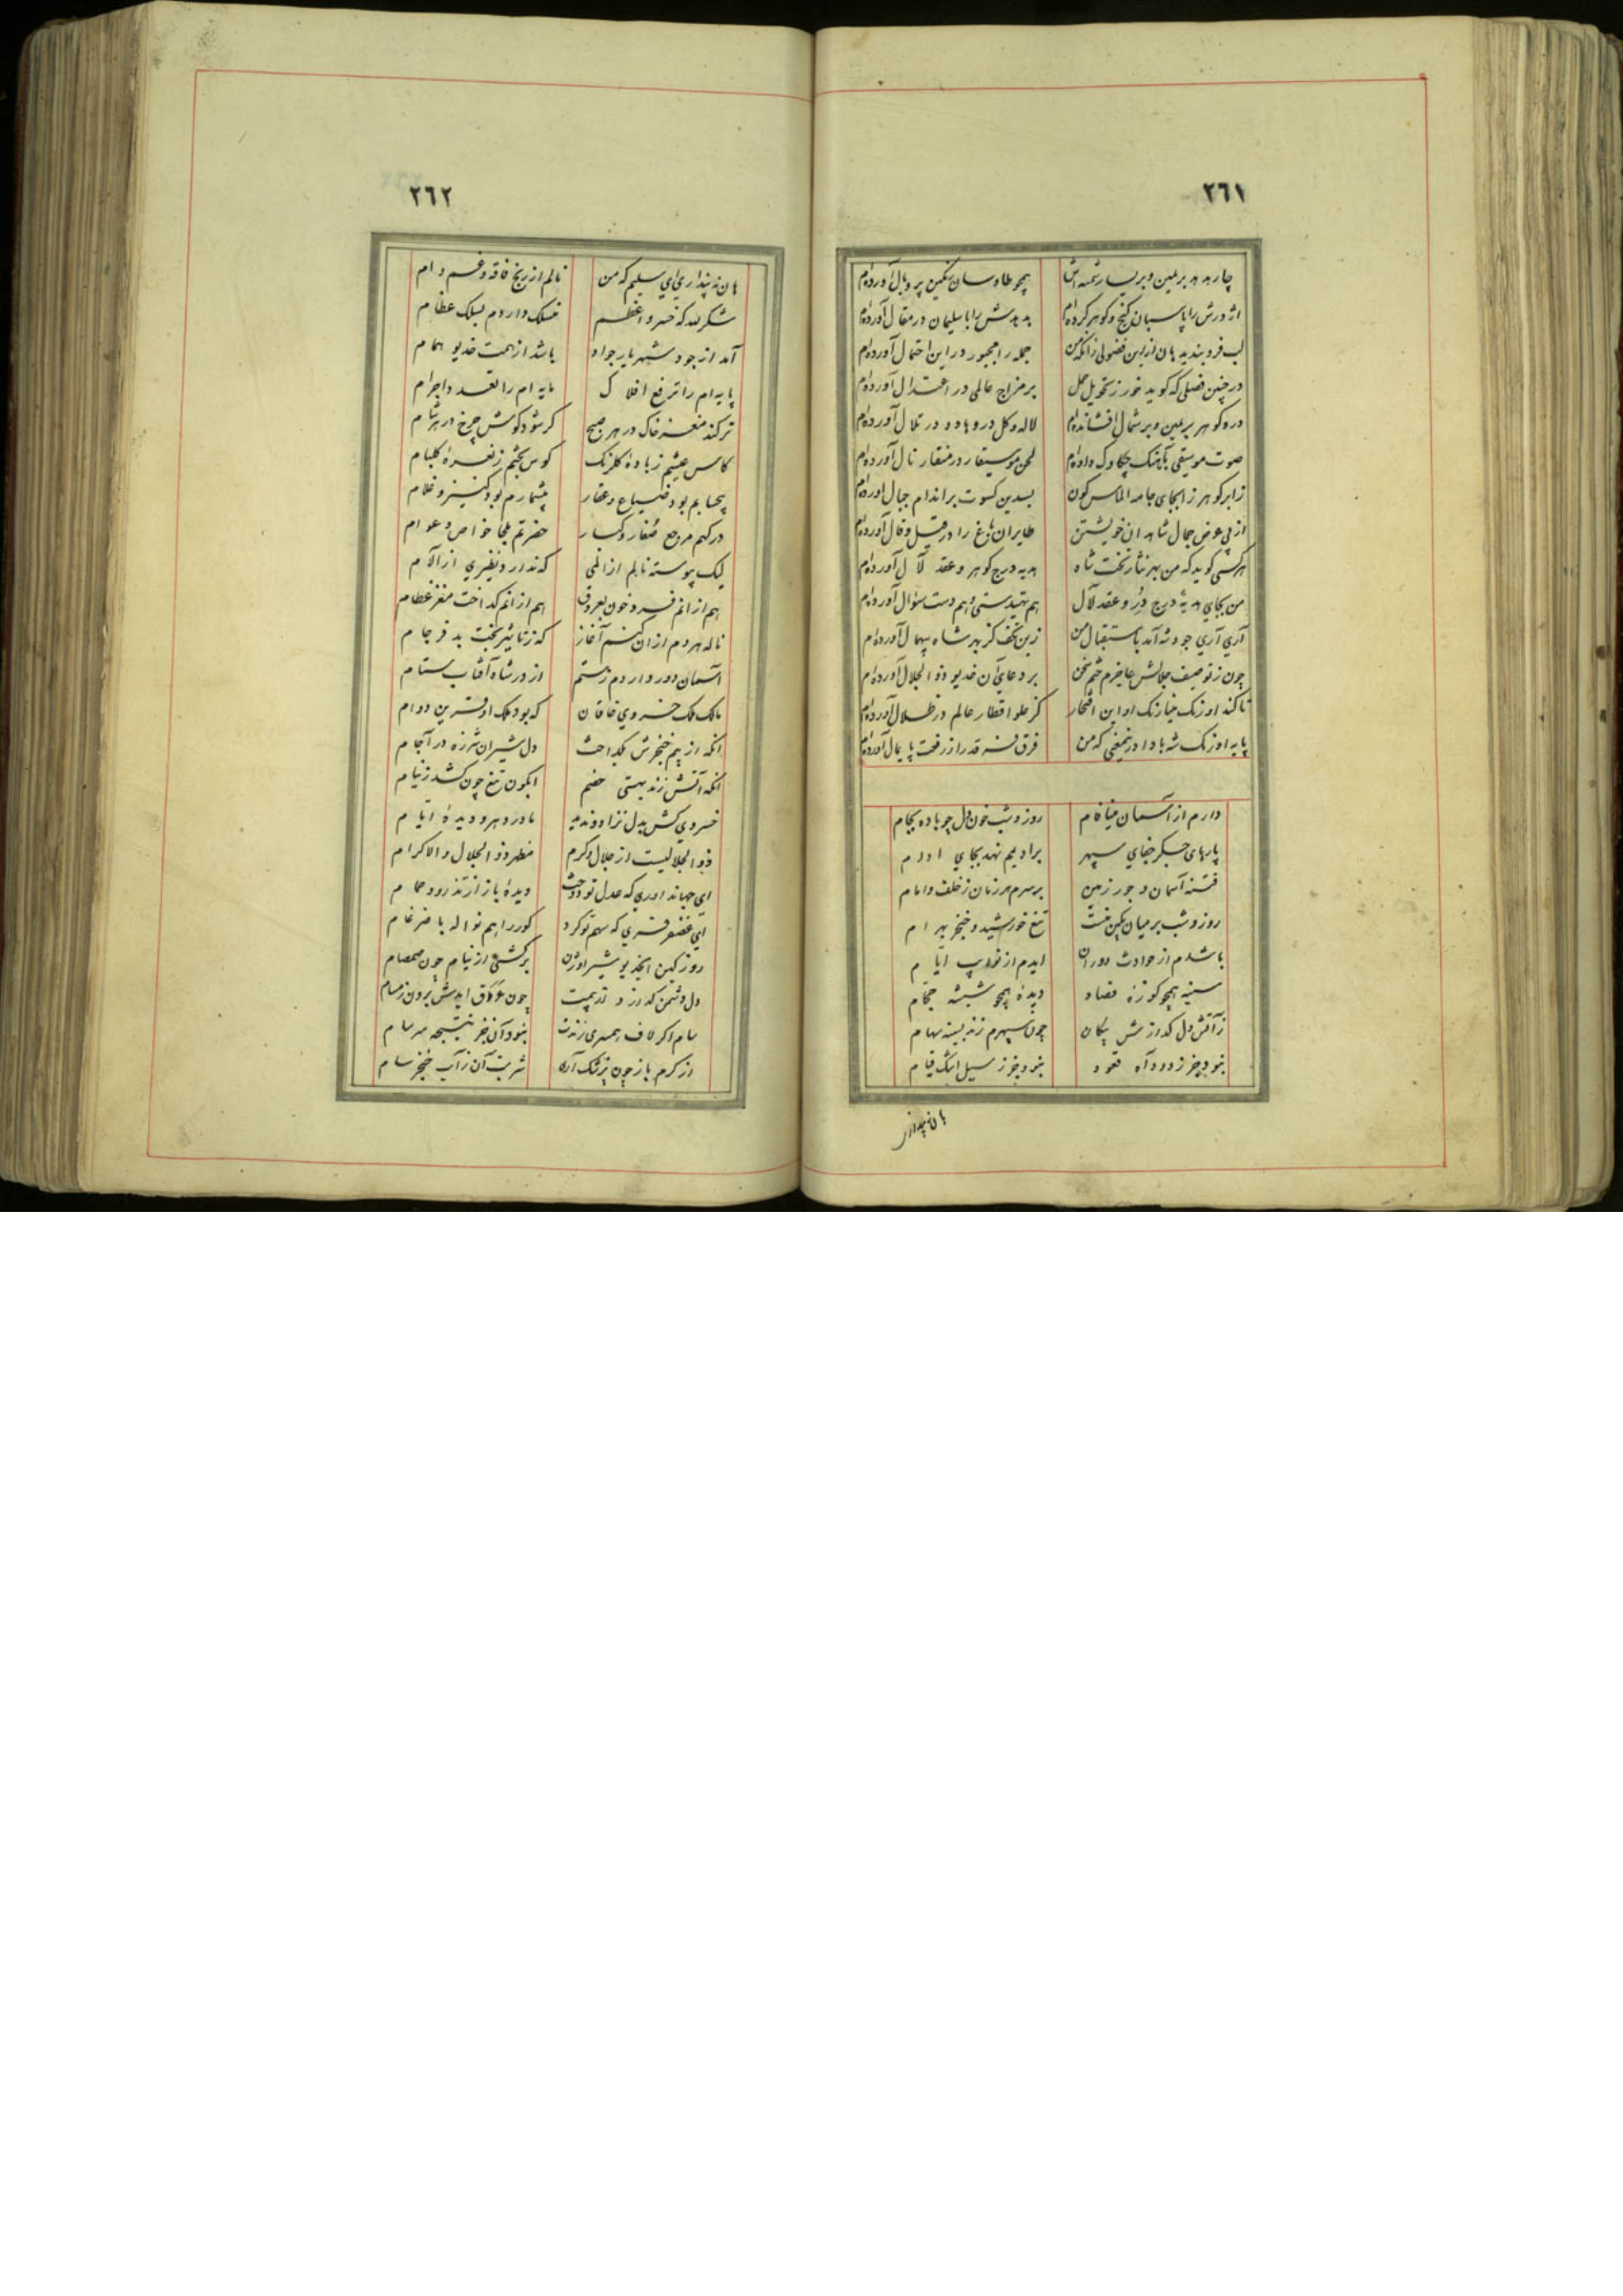 ٢٦١
چار هدهد بر یمین و بر یسار شمسه‌اش همچو طاوسان رنگین پر و بال آورده‌ام
اژدرش را پاسبان گنج و گوهر کرده‌ام هدهدش را با سلیمان در مقال آورده‌ام
لب فرو بندید هان از این فضولی زانکه من جمله را مجبور در این احتمال آورده‌ام
در چنین فصلی که گوید خور ز تحویل حمل بر مزاج عالمی در اعتدال آورده‌ام
در و گوهر بر یمین و بر شمال افشانده‌ام لاله و گل در وهاد و در تلال آورده‌ام
صوت موسیقی بآهنگ چکاوک داده‌ام لحن موسیقار در منقار نال آورده‌ام
زابر گوهرزا بجای جامه الماس گون بسدین کسوت بر اندام جبال آورده‌ام
از پی عرض جمال شاهدان خویشتن طایران باغ را در قیل و قال آورده‌ام
هر کسی گوید که من بهر نثار تخت شاه هدیه درج گوهر و عقد لآل آورده‌ام
من بجای هدیهٔ درج در و عقد لآل هم تهیدستی و هم دست سؤال آورده‌ام
آری آری جود شه آمد باستقبال من زین تحف کز بهر شاه بیهمال آورده‌ام
چون ز توصیف جلالش عاجزم ختم سخن بر دعای آن خدیو ذو الجلال آورده‌ام
تا کند اورنگ مینا رنگ او این افتخار کز علو اقطار عالم در ظلال آورده‌ام
پایه اورنگ شه بادا در نمعنی که من فرق نه قدر از رفعت پایمال آورده‌ام
دارم از آسمان مینا فام روز و شب خون دل چو باده بجام
پارهای جگر جفای سپهر برادیمم نهد بجای ادام
فتنه آسمان و جور زمین بر سرم هر زمان ز خلف و امام
روز و شب بر میان بکین منست تیغ خورشید و خنجر بهرام
باشدم از حوادث دوران ایدم از نوایب ایام
سینه همچو کوزهٔ فصاد دیدهٔ همچو شیشه حجام
ز آتش دل گدازمش پیکان چون سپهرم زند بسینه سهام
نبود جز ز دود آه قعود نبود جز ز سیل اشک قیام
هان نه پنداری
٢٦٢
هان نه پنداری ای سلیم که من نالم از رنج فاقه و غم وام
شکر لله که خسرو اعظم منسلک داردم بسلک عظام
آمد از جود شهریار جواد باشد از همت خدیو همام
پایه‌ام را ترفع افلاک مایه‌ام را تعدد اجرام
تر کند مغز خاک در هر صبح کر شود گوش چرخ در هر شام
کاس عیشم ز بادهٔ گلرنگ کوس بختم ز نعرهٔ گلبام
بیحسابم بود ضیاع و عقار بیشمارم بود کنیز و غلام
درگهم مرجع صغار و کبار حضرتم ملجا خواص و عوام
لیک پیوسته نالم از المی که ندارد نظیری از آلام
هم از انم فسرد خون بعروق هم از انم گداخت مغز عظام
ناله هر دم از ان کنم آغاز که ز تاثیر بخت بد فرجام
آسمان دور داردم ز ستم از در شاه آفتاب ستام
مالک ملک خسروی خاقان که بود ملک او قرین دوام
انکه از بیم خنجرش بگداخت دل شیران شرزه در آجام
انکه آتش زند بهستی خصم ابگون تیغ چون کشد ز نیام
خسروی کش بدل نزاد و ندید مادر دهر و دیدهٔ ایام
ذو الجلالیست از جلال و کرم مظهر ذو الجلال و الاکرام
ای جهانداوری که عدل تو دوخت دیدهٔ باز از تذرو و حمام
ای غضنفر فری که سهم تو کرد گور را هم نواله با ضرغام
روز کین ایخدیو شیر اوژن برکشی از نیام چون صمصام
دل دشمن گدازد و ز تهیبت چون عرق ایدش برون ز مسام
سام اگر لاف همسری زندت نبود آن جز نتیجه سرسام
از کرم باز چون پزشک آری شربت آن ز آب خنجر سام